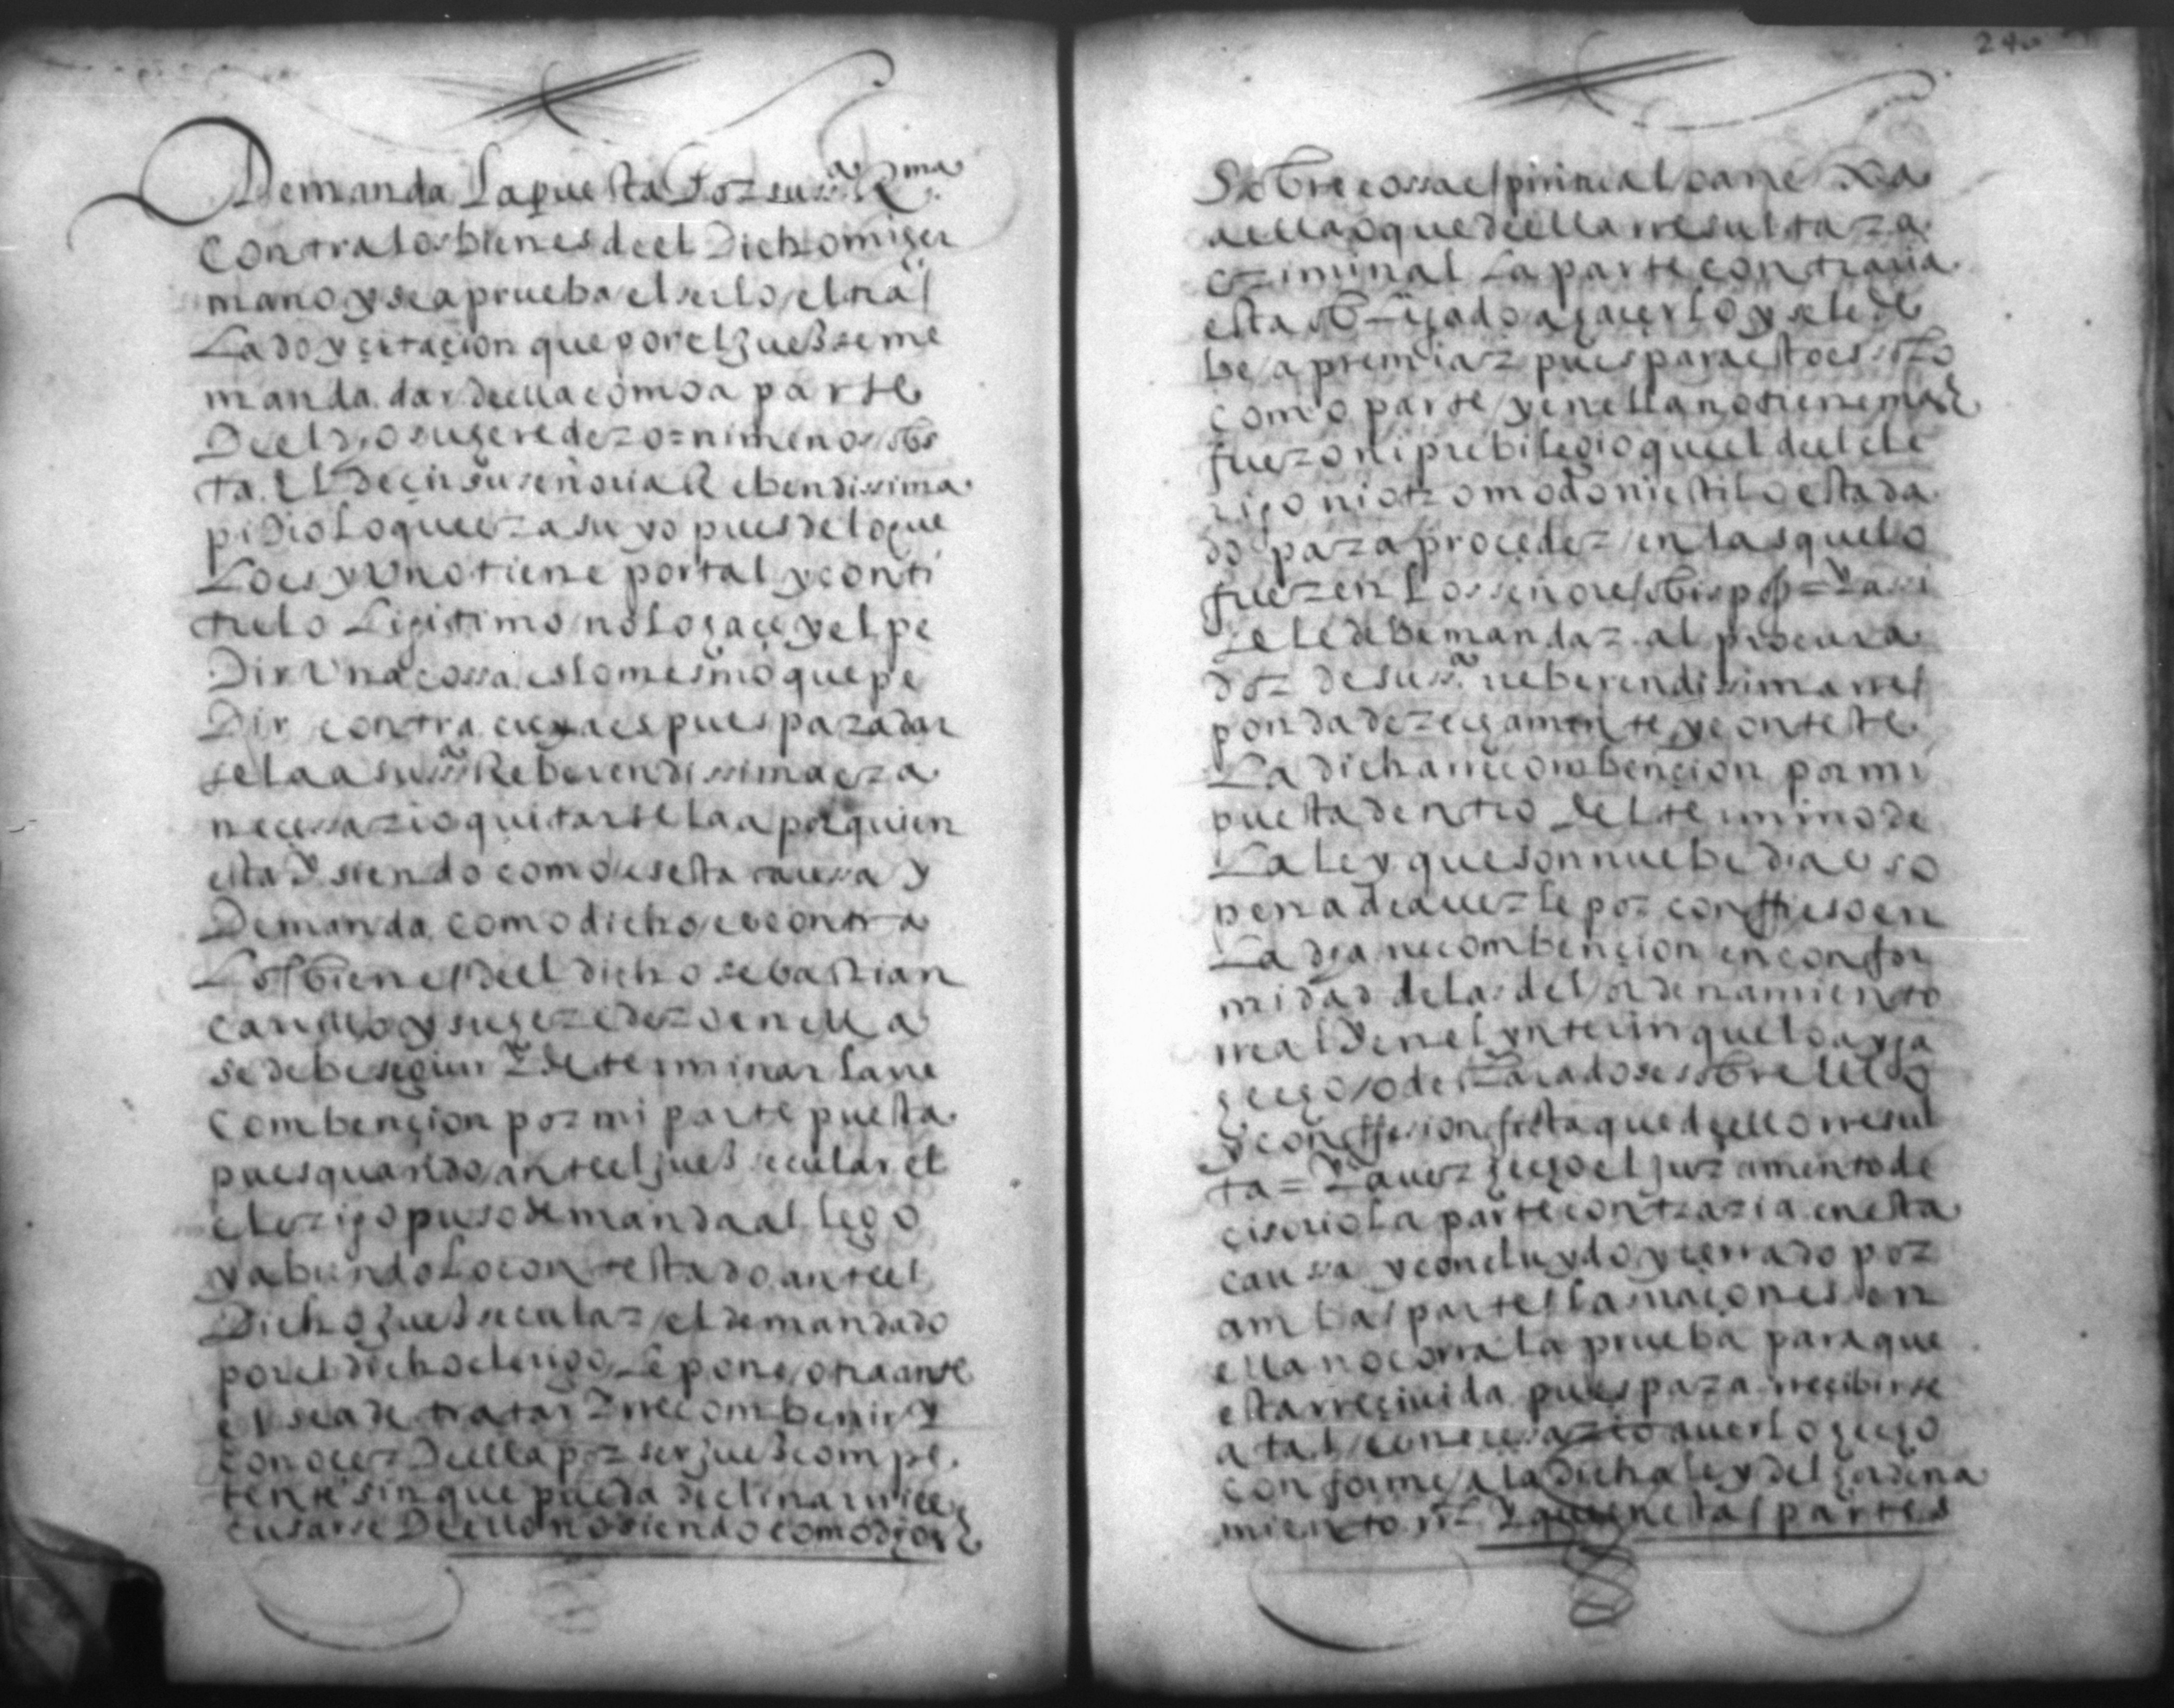 Demanda La puesta Por su sª Rma
contra los bienes de el Dicho mi her
mano y se a prueba el serlo el tras
Lado y çitaçion que por el Juez se me
manda dar de ella como a parte
De el dho su heredero = ni menos obs
ta El deçir su señoria Rebendissima
pidio Lo que era suyo pues de lo que
Lo es y Uno tiene por tal y con ti
tulo Ligitimo no Lo haçe y el pe
Dir Una cossa es lo mesmo que pe
Dir contra cuya es pues para dar
sela a su sª Reberendissima era
neçessario quitarsela a por quien
esta Y siendo como es esta caussa y
Demanda como dicho es contra
Los bienes de el dicho sebastian
carillo y su heredero en ella
se debe seguir Y determinar la rre
combençion por mi parte puesta
pues quando ante el juez secular el
clerigo puso demanda al lego
y abiendolo contestado ante el
Dicho Juez secular el demandado
por el dicho clerigo Le pone otra ante
el sea de tratar Y rrecombenir y
conoçer De ella por ser juez compe
tente sin que pueda declinar ni ex
cusarse De ello no siendo como dho es
240
Sobre cossa espiritual o ane xa
a ella o que de ella rresultara
criminal La parte contraria
esta obligado a haçerlo y se le de
be apremiar pues para esto es
como parte y en ella no tiene mas
fuero ni prebilegio que el de el cle
rigo ni otro modo ni estilo esta da
do para proçeder en las que lo
fueren Los senores obispos = Y assi
se le debe mandar al procura
dor de su sª reberendissima rres
ponda derechamente y conteste
La dicha rrecombençion por mi
puesta dentro del termino de
La ley que son nuebe dias so
pena de aver le por confieso en
La dha recombençion en confor
midad de la del ordenamiento
rreal Y en el ynterin que lo aya
hecho o declarado se sobre ello
y confession ficta que de ello rresul
ta = Y aver hecho el juramento de
cisorio La parte contraria en esta
caussa y concluydo y cerrado por
ambas partes las raçones en
ella no corra la prueba para que
esta rreçiuida pues para rreçibirse
a tal es neçessario averlo hecho
conforme a la dicha ley del hordena
miento rl Y que en estas partes